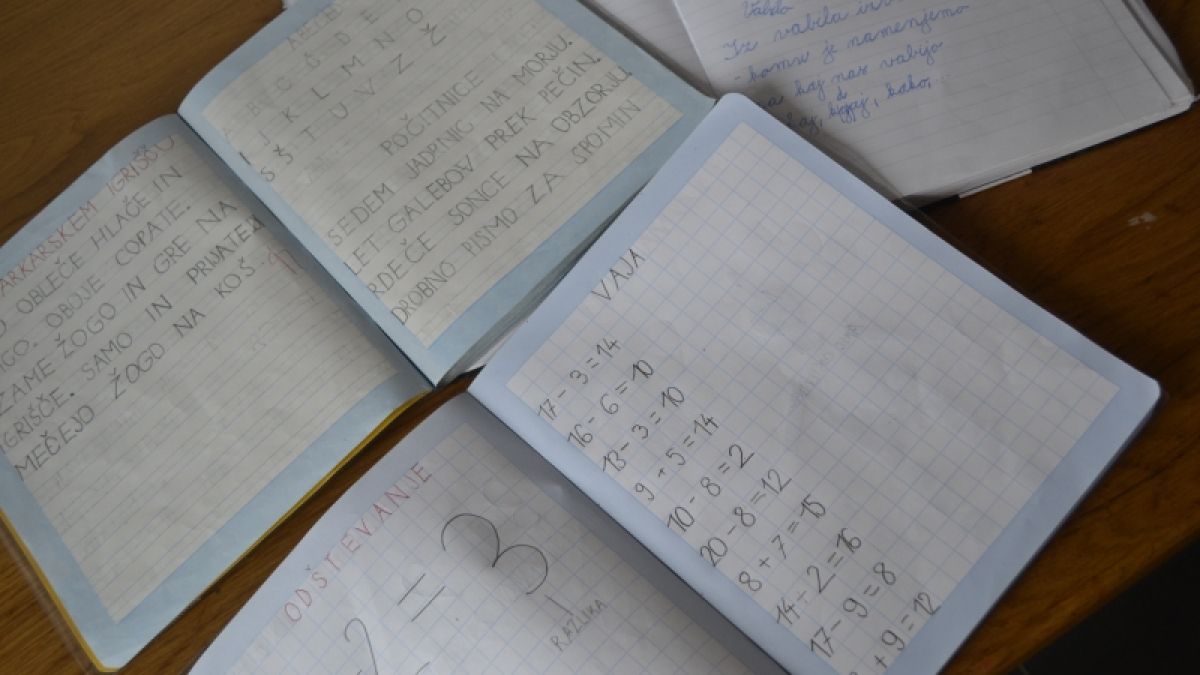 ARKARSKEM IGRIŠČU
OBLEČE HLAČE IN
OBOJE COPATE.
ZAME ŽOGO IN GRE NA
IGRIŠČE. SAMO IN PRIJATELJ
MEČEJO ŽOGO NA KOŠ
B C Č D E
J K L M N O
S Š T U V Z Ž
POČITNICE
SEDEM JADRNIC NA MORJU.
LET GALEBOV PREK PEČIN.
RDEČE SONCE NA OBZORJU
DROBNO PISMO ZA SPOMIN
Vabilo
Iz vabila
- komu je namenjeno
kaj nas vabijo
kaj, kdaj, kako,
VAJA
17 - 3 = 14
16 - 6 = 10
13 - 3 = 10
9 + 5 = 14
10 - 8 = 2
20 - 8 = 12
8 + 7 = 15
14 - 2 = 16
17 - 9 = 8
+ 9 = 12
ODŠTEVANJE
2 = 3
RAZLIKA